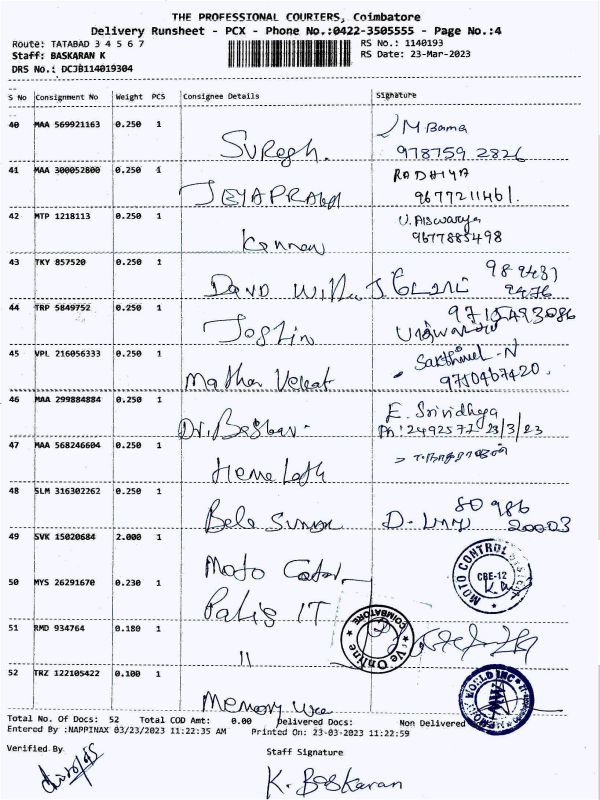 THE PROFESSIONAL COURIERS, Coimbatore
Delivery Runsheet - PCX - Phone No.:0422-3505555 - Page No.:4
Route: TATABAD 3 4 5 6 7
RS No.: 1140193
Staff: BASKARAN K
RS Date: 23-Mar-2023
DRS No.: DCJB114019304
S No Consignment No Weight PCS Consignee Details Signature
40 MAA 569921163 0.250 1
Suregh. J M Bama
978759 2826
41 MAA 300052800 0.250 1
JEYAPRAbha RADHIYA
9677211461.
42 MTP 1218113 0.250 1
Kannan U. Aiswarya
9677885498
43 TKY 857520 0.250 1
David
44 TRP 5849752 0.250 1
Jostin 9715493086
45 VPL 216056333 0.250 1
Mathan Venkat Sakthivel-N
9750467420.
46 MAA 299884884 0.250 1
Dr. Baskar. E. Srividhya
Ph: 2492577 23/3/23
47 MAA 568246604 0.250 1
Hemalath
48 SLM 316302262 0.250 1
Bala 80 986
20003
49 SVK 15020684 2.000 1
Moto MOTO CONTROL
CBE-12
50 MYS 26291670 0.230 1
Palis IT
51 RMD 934764 0.180 1
11 COIMBATORE
Ve Online
52 TRZ 122105422 0.100 1
Memory WORLD INC
Total No. Of Docs: 52 Total COD Amt: 0.00 Delivered Docs: Non Delivered
Entered By :NAPPINAX 03/23/2023 11:22:35 AM Printed On: 23-03-2023 11:22:59
Verified By Staff Signature
K. Baskaran